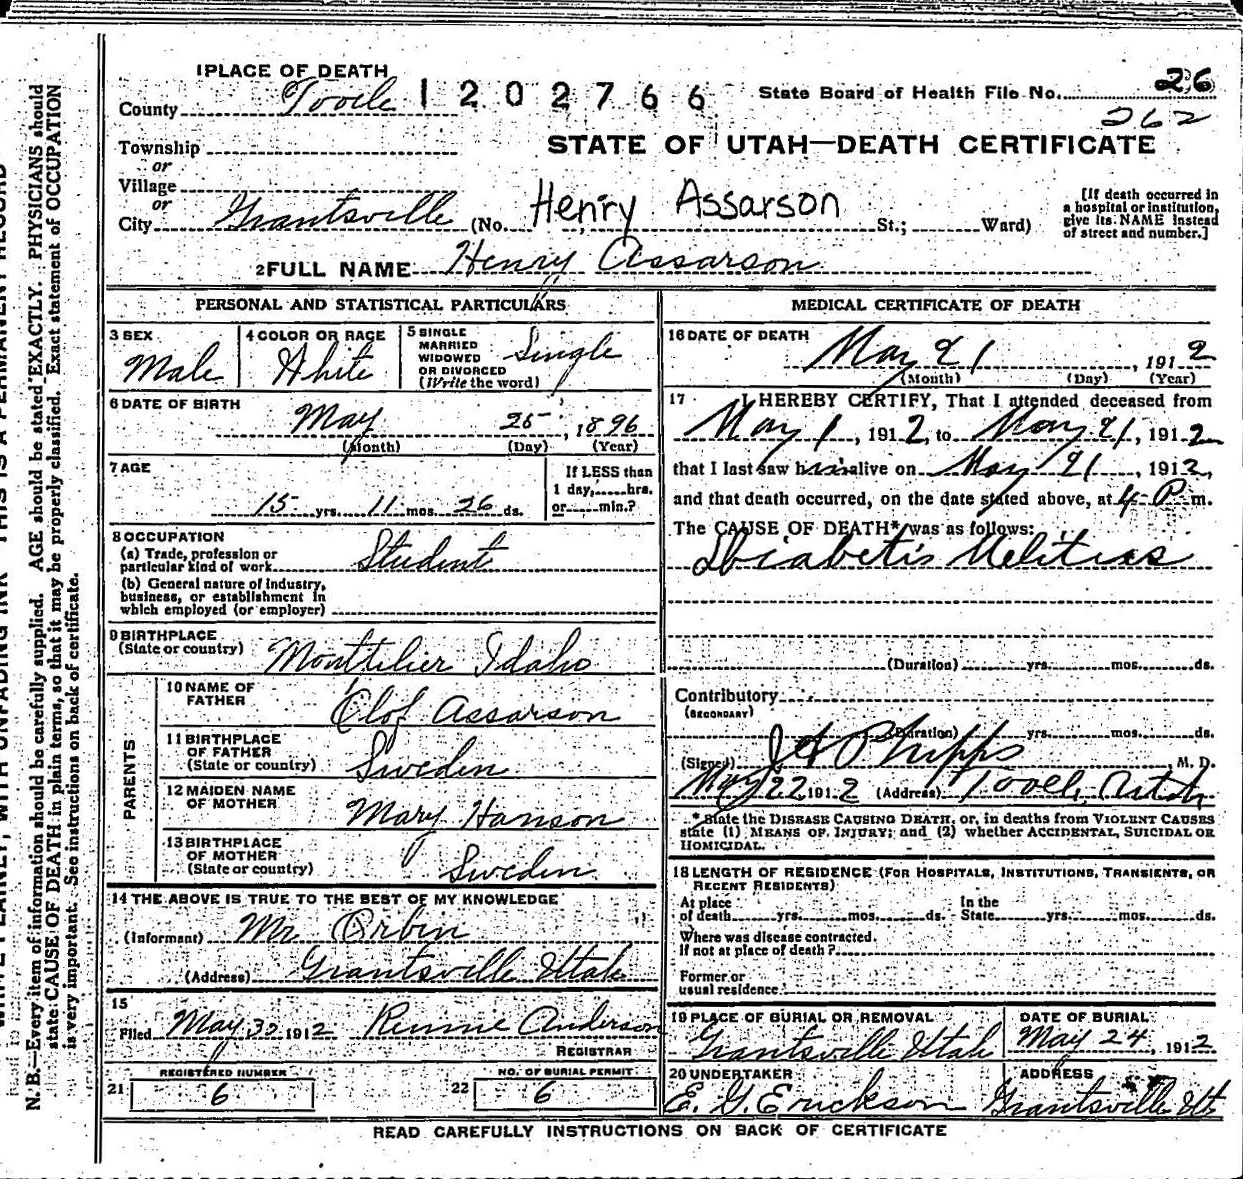 1 PLACE OF DEATH
County Tooele 1202766 State Board of Health File No. 26
262
Township
or
STATE OF UTAH—DEATH CERTIFICATE
Village
or
City Grantsville (No. Henry Assarson St.; Ward)
[If death occurred in a hospital or institution, give its NAME instead of street and number.]
2 FULL NAME Henry Assarson
PERSONAL AND STATISTICAL PARTICULARS
3 SEX Male
4 COLOR OR RACE White
5 SINGLE MARRIED WIDOWED OR DIVORCED (Write the word) Single
6 DATE OF BIRTH May 25, 1896
(Month) (Day) (Year)
7 AGE 15 yrs. 11 mos. 26 ds.
If LESS than 1 day, hrs. or min.?
8 OCCUPATION
(a) Trade, profession or particular kind of work Student
(b) General nature of industry, business, or establishment in which employed (or employer)
9 BIRTHPLACE
(State or country) Monttelier Idaho
PARENTS
10 NAME OF FATHER Olof Assarson
11 BIRTHPLACE OF FATHER (State or country) Sweden
12 MAIDEN NAME OF MOTHER Mary Hanson
13 BIRTHPLACE OF MOTHER (State or country) Sweden
14 THE ABOVE IS TRUE TO THE BEST OF MY KNOWLEDGE
(Informant) Mr Orbin
(Address) Grantsville Utah
15
Filed May 30 1912 Rennie Anderson
REGISTRAR
21 REGISTERED NUMBER 6
22 NO. OF BURIAL PERMIT 6
MEDICAL CERTIFICATE OF DEATH
16 DATE OF DEATH May 21, 1912
(Month) (Day) (Year)
17 I HEREBY CERTIFY, That I attended deceased from
May 1, 1912, to May 21, 1912
that I last saw him alive on May 21, 1912,
and that death occurred, on the date stated above, at 4 P m.
The CAUSE OF DEATH* was as follows:
Diabetis Melitias
(Duration) yrs. mos. ds.
Contributory
(SECONDARY)
(Duration) yrs. mos. ds.
(Signed) J A Phipps, M. D.
May 22 1912 (Address) Tooele, Utah
* State the DISEASE CAUSING DEATH, or, in deaths from VIOLENT CAUSES
state (1) MEANS OF INJURY; and (2) whether ACCIDENTAL, SUICIDAL OR
HOMICIDAL.
18 LENGTH OF RESIDENCE (FOR HOSPITALS, INSTITUTIONS, TRANSIENTS, OR
RECENT RESIDENTS)
At place of death yrs. mos. ds. In the State yrs. mos. ds.
Where was disease contracted.
If not at place of death?
Former or
usual residence
19 PLACE OF BURIAL OR REMOVAL Grantsville Utah
DATE OF BURIAL May 24, 1912
20 UNDERTAKER E. G. Erickson
ADDRESS Grantsville Ut
READ CAREFULLY INSTRUCTIONS ON BACK OF CERTIFICATE
N. B.—Every item of information should be carefully supplied. AGE should be stated EXACTLY. PHYSICIANS should
state CAUSE OF DEATH in plain terms, so that it may be properly classified. Exact statement of OCCUPATION
is very important. See instructions on back of certificate.